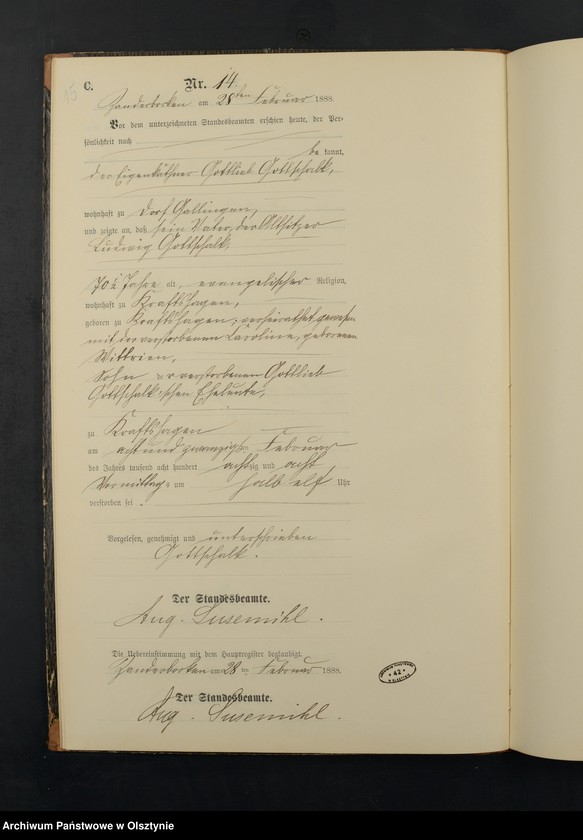 15
C.
Nr. 14.
Sanderbocken am 28ten Februar 1888.
Vor dem unterzeichneten Standesbeamten erschien heute, der Per-
sönlichkeit nach
be kannt,
der Eigenkäthner Gottlieb Gottschalk,
wohnhaft zu Dorf Gallingen,
und zeigte an, daß sein Vater, der Altsitzer
Ludwig Gottschalk,
70½ Jahre alt, evangelischer Religion,
wohnhaft zu Kraftshagen,
geboren zu Kraftshagen, verheirathet gewesen
mit der verstorbenen Caroline, geborenen
Wittrien,
Sohn der verstorbenen Gottlieb
Gottschalk'schen Eheleute,
zu Kraftshagen
am acht und zwanzigsten Februar
des Jahres tausend acht hundert achtzig und acht
Vormittags um halb elf Uhr
verstorben sei.
Vorgelesen, genehmigt und unterschrieben
Gottschalk.
Der Standesbeamte.
Aug. Susemihl.
Die Uebereinstimmung mit dem Hauptregister beglaubigt.
Sanderbocken am 28 ten Februar 1888.
Der Standesbeamte.
Aug. Susemihl.
42
Archiwum Państwowe w Olsztynie